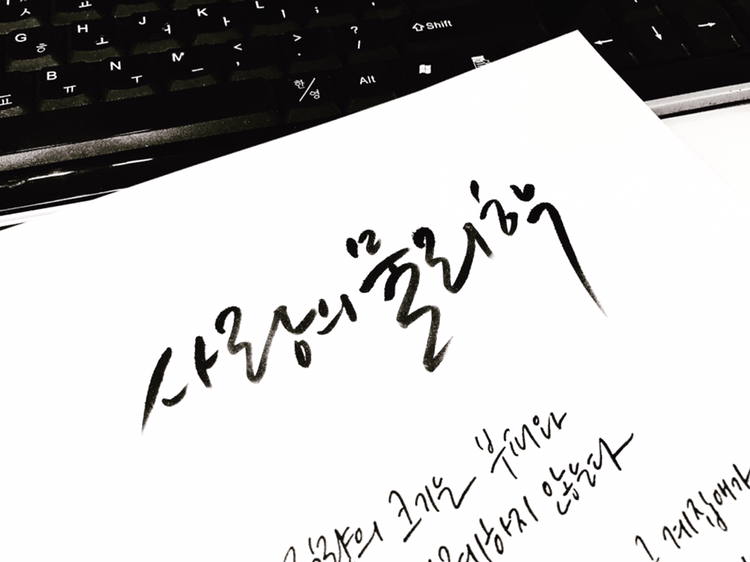 G H J K L : "
ㅎ ㅗ ㅏ ㅣ ; '
Shift
B N M < > ? /
ㅠ ㅜ ㅡ , .
한/영 Alt
사랑의 물리학
량의 크기는 부피와
례하지 않는다
그 계집애가